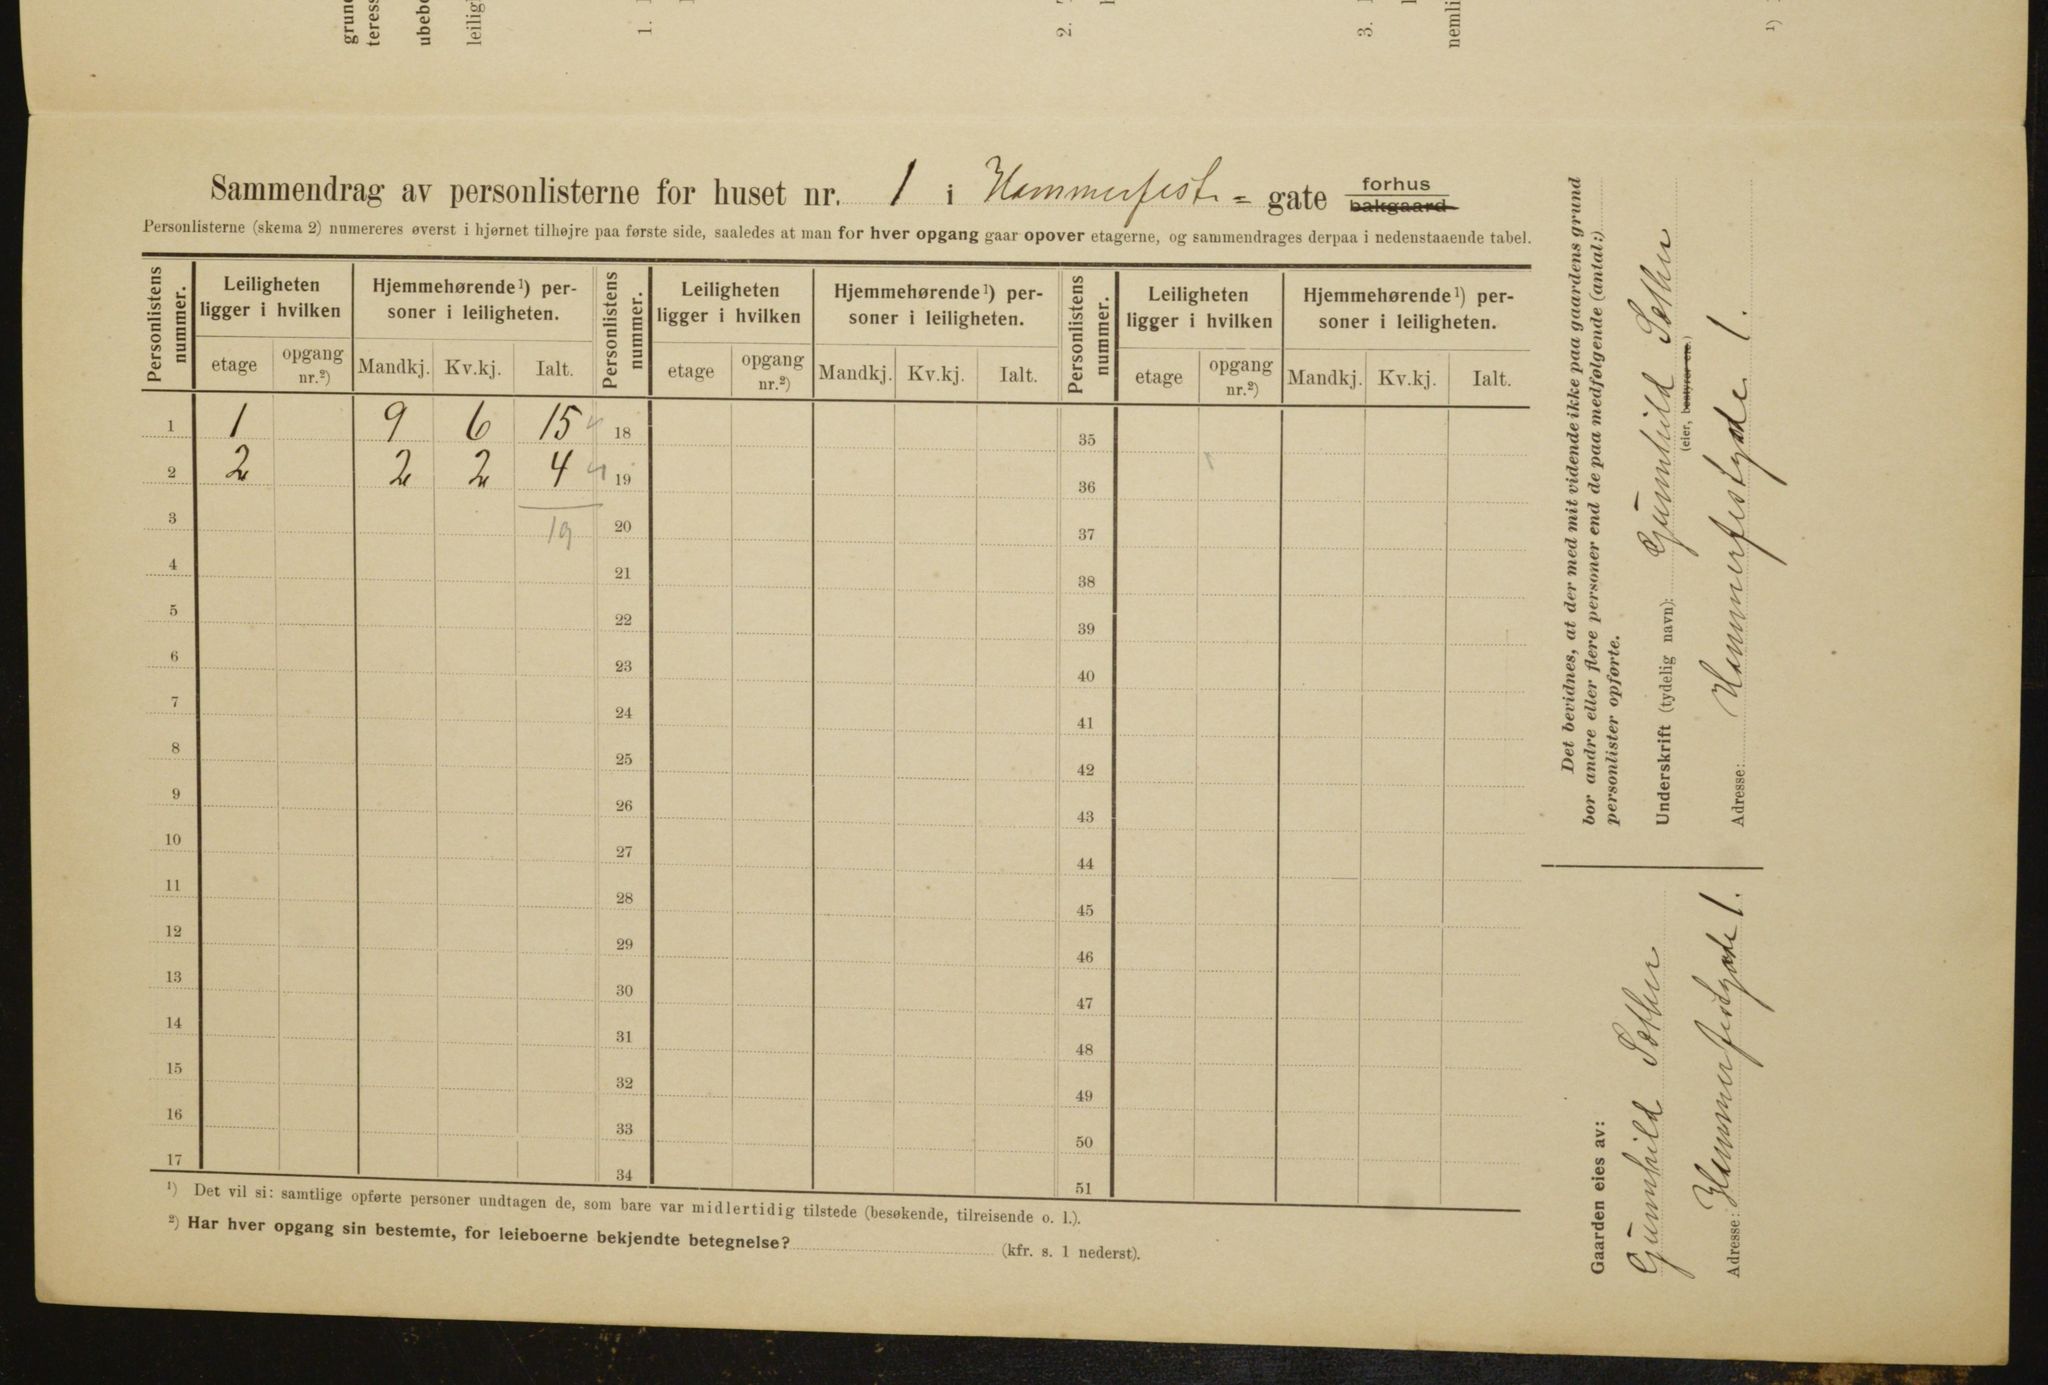 grund
teress
ubebo
leilig
1.
2.
3.
nemli
1)
Sammendrag av personlisterne for huset nr. 1 i Hammerfest- gate forhus
bakgaard
Personlisterne (skema 2) numereres øverst i hjørnet tilhøjre paa første side, saaledes at man for hver opgang gaar opover etagerne, og sammendrages derpaa i nedenstaaende tabel.
Personlistens nummer. Leiligheten ligger i hvilken Hjemmehørende¹) personer i leiligheten. Personlistens nummer. Leiligheten ligger i hvilken Hjemmehørende¹) personer i leiligheten. Personlistens nummer. Leiligheten ligger i hvilken Hjemmehørende¹) personer i leiligheten.
etage opgang nr.²) Mandkj. Kv.kj. Ialt. etage opgang nr.²) Mandkj. Kv.kj. Ialt. etage opgang nr.²) Mandkj. Kv.kj. Ialt.
1 1 9 6 15 18 35
2 2 2 2 4 19 36
3 19 20 37
4 21 38
5 22 39
6 23 40
7 24 41
8 25 42
9 26 43
10 27 44
11 28 45
12 29 46
13 30 47
14 31 48
15 32 49
16 33 50
17 34 51
¹) Det vil si: samtlige opførte personer undtagen de, som bare var midlertidig tilstede (besøkende, tilreisende o. l.).
²) Har hver opgang sin bestemte, for leieboerne bekjendte betegnelse? (kfr. s. 1 nederst).
Det bevidnes, at der med mit vidende ikke paa gaardens grund
bor andre eller flere personer end de paa medfølgende (antal:)
personlister opførte.
Underskrift (tydelig navn): Gunnhild Sæther
(eier, bestyrer etc.)
Adresse: Hammerfestgade 1.
Gaarden eies av:
Gunnhild Sæther
Adresse: Hammerfestgade 1.